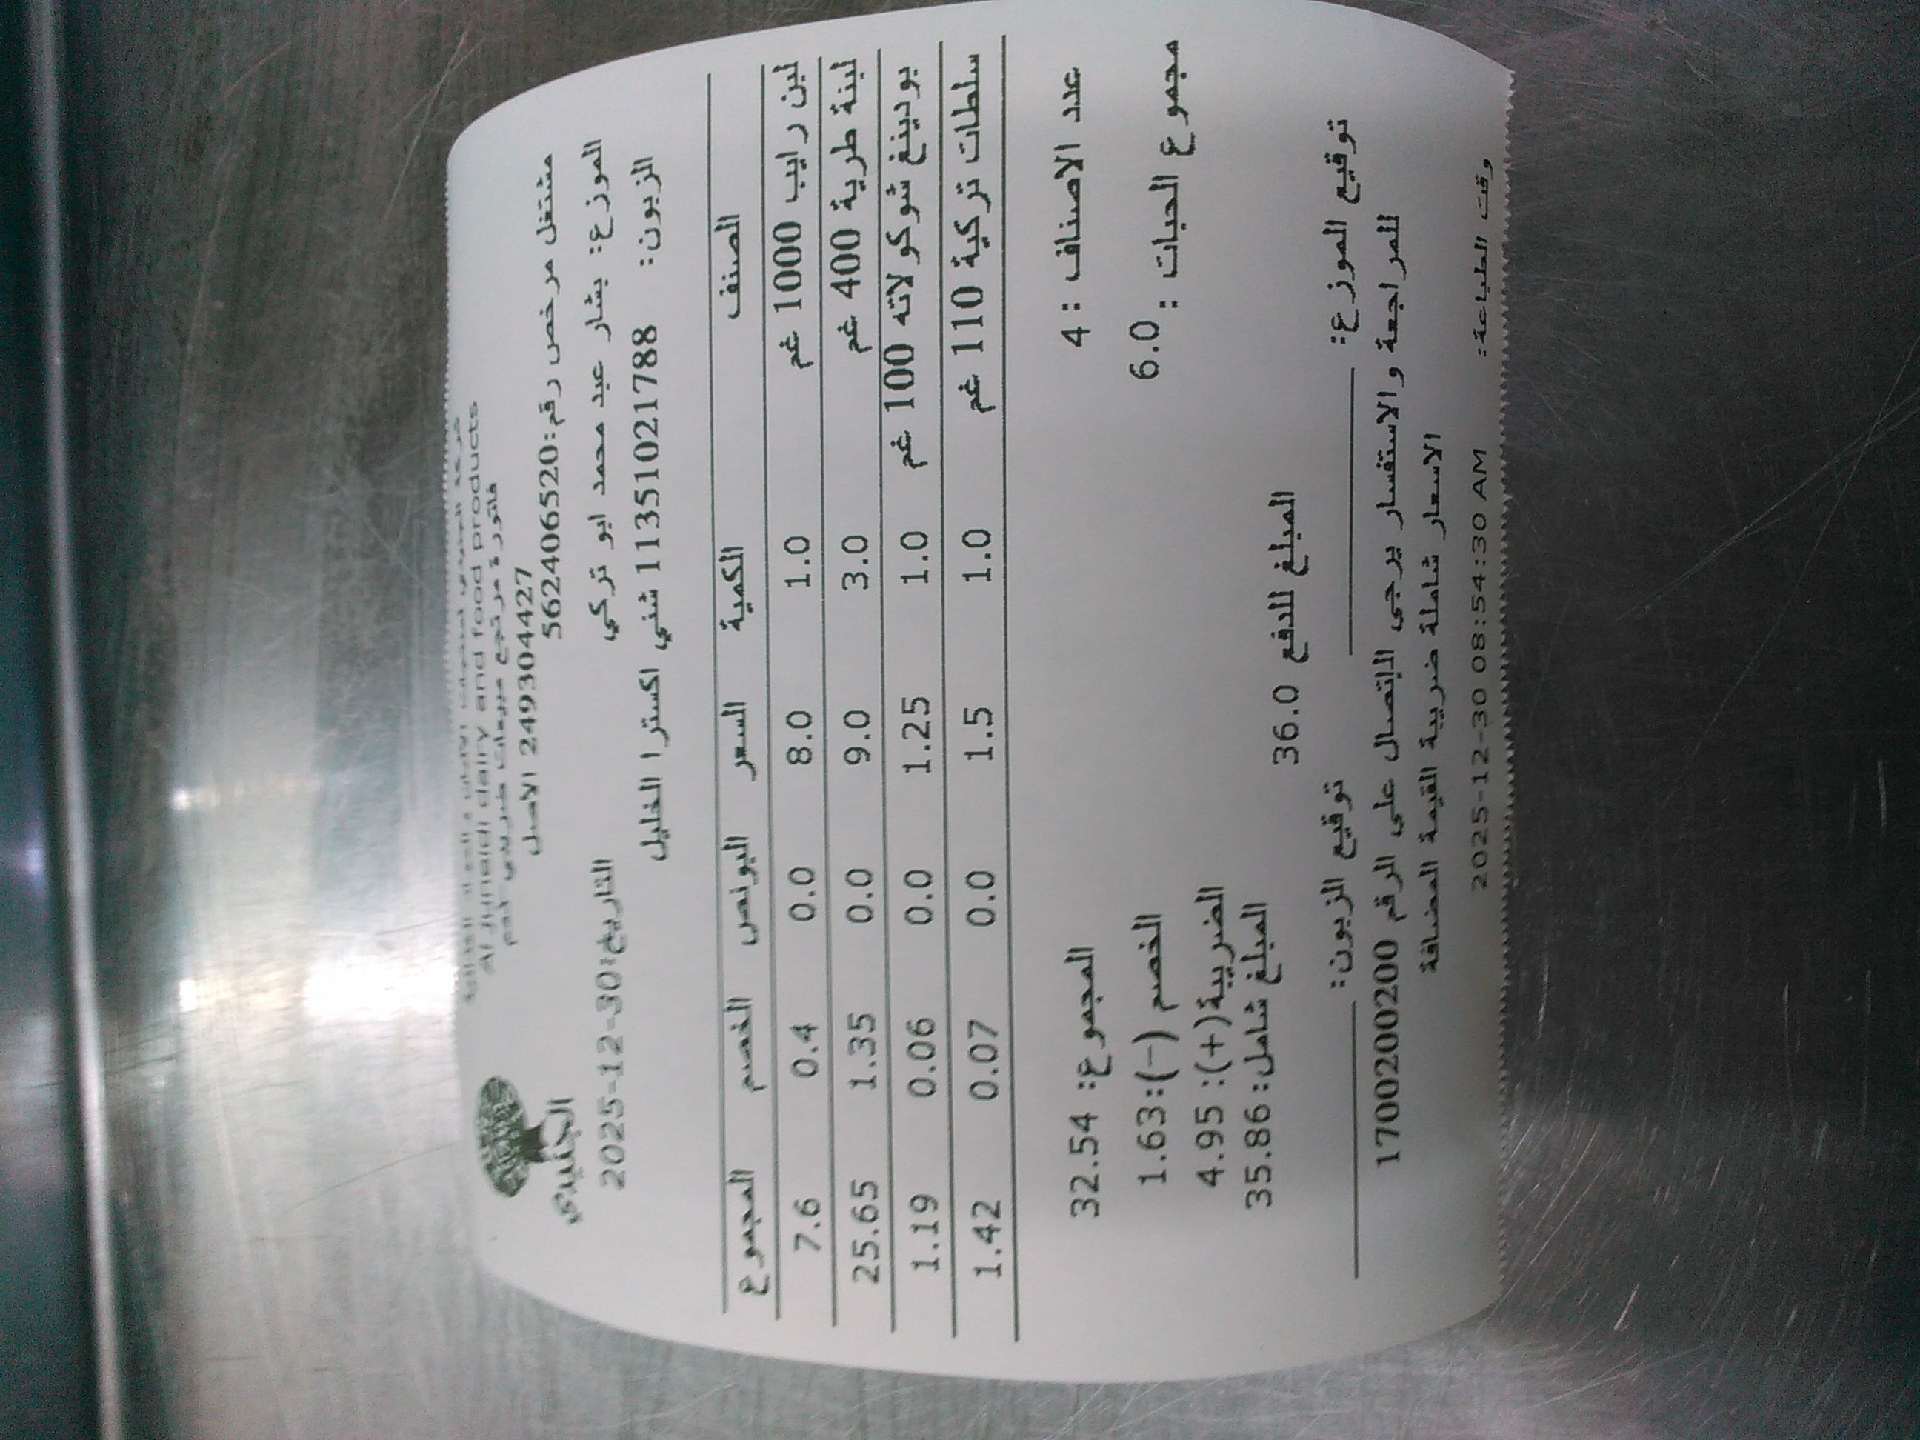 شركة الجنيدي لمنتجات الالبان و المواد الغذائية
Al Juneidi dairy and food products
فاتورة مرتجع مبيعات ضريبي رقم
249304427 الاصل
مشتغل مرخص رقم:562406520
الجنيدي
الموزع: بشار عبد محمد ابو تركي
التاريخ:2025-12-30
الزبون: 11135102‏1788 شني اكسترا الخليل
الصنف الكمية السعر البونص الخصم المجموع
لبن رايب 1000 غم 1.0 8.0 0.0 0.4 7.6
لبنة طرية 400 غم 3.0 9.0 0.0 1.35 25.65
بودينغ شوكولاته 100 غم 1.0 1.25 0.0 0.06 1.19
سلطات تركية 110 غم 1.0 1.5 0.0 0.07 1.42
عدد الاصناف : 4 المجموع: 32.54
مجموع الحبات : 6.0 الخصم (-):1.63
الضريبة(+): 4.95
المبلغ شامل: 35.86
المبلغ للدفع 36.0
توقيع الموزع: توقيع الزبون:
للمراجعة والاستفسار يرجى الاتصال على الرقم 1700200200
الاسعار شاملة ضريبة القيمة المضافة
وقت الطباعة: 2025-12-30 08:54:30 AM